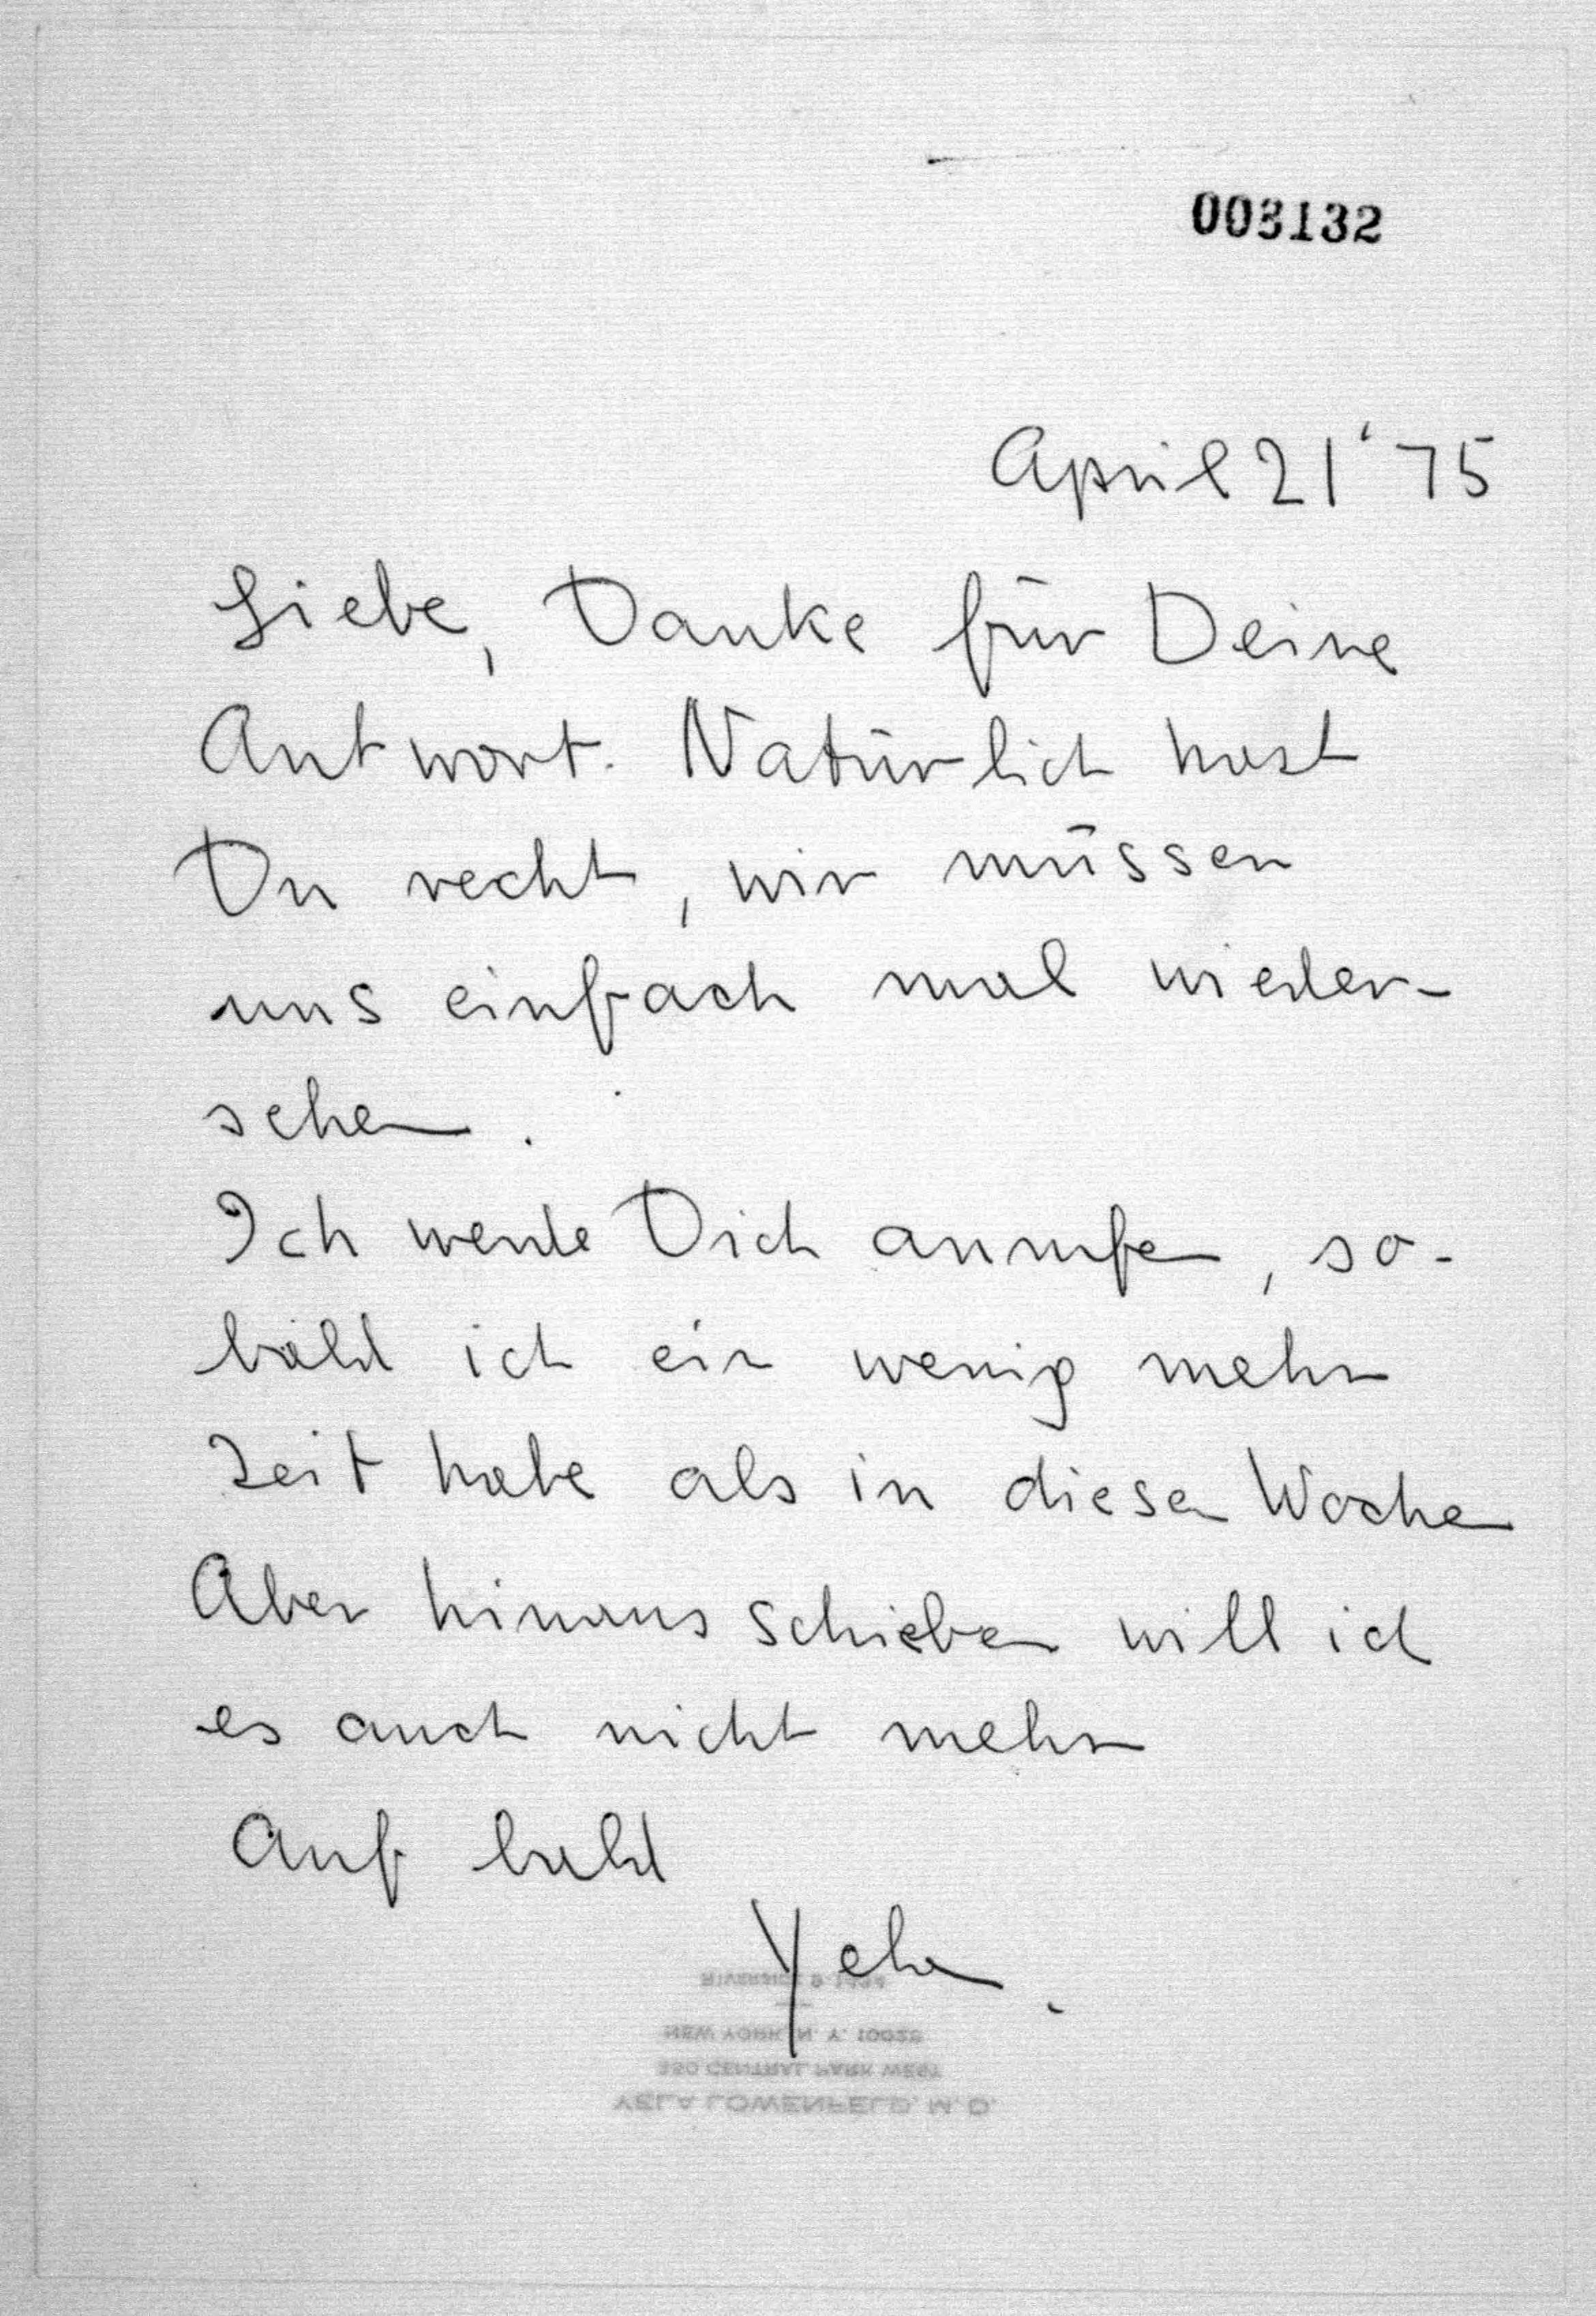 003132
April 21 '75
Liebe, Danke für Deine
Antwort. Natürlich hast
Du recht, wir müssen
uns einfach mal wieder-
sehen.
Ich werde Dich anrufen, so-
bald ich ein wenig mehr
Zeit habe als in diesen Wochen
Aber hinausschieben will ich
es auch nicht mehr
Auf bald
Yela.
NEW YORK, N. Y. 10025
CENTRAL PARK WEST
YELA LOWENFELD, M. D.